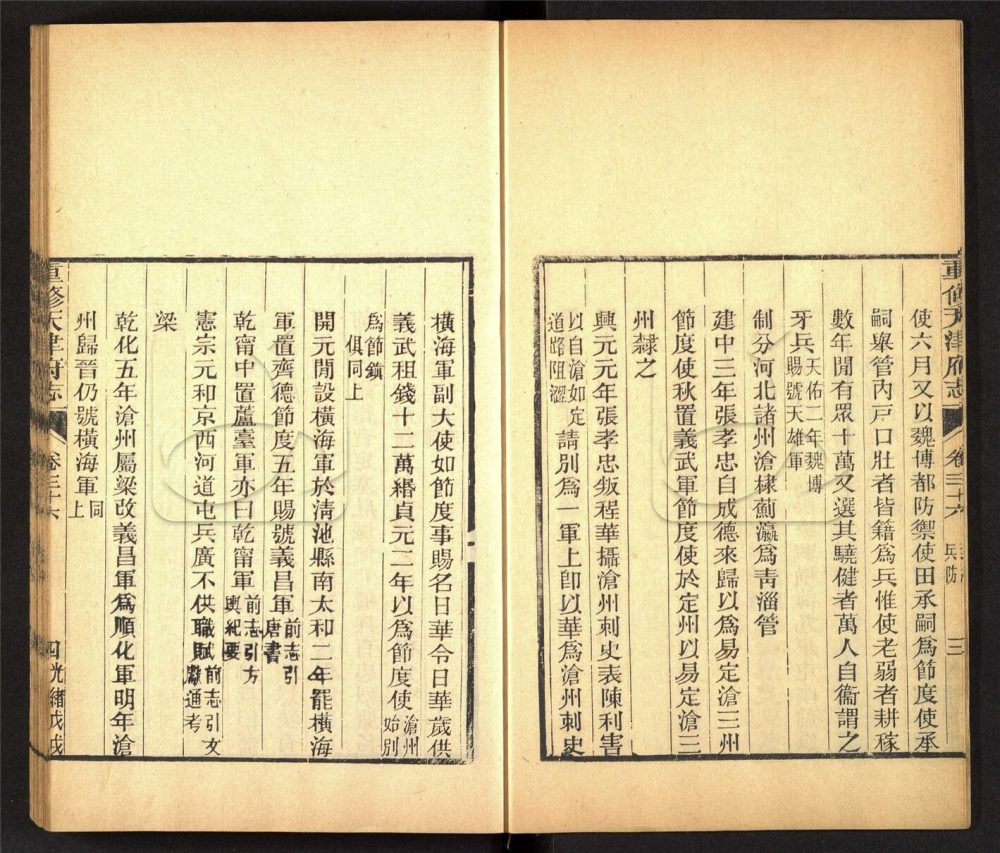 重修天津府志 卷三十六 兵防 三
使六月又以魏博都防禦使田承嗣爲節度使承
嗣舉管內戶口壯者皆籍爲兵惟使老弱者耕稼
數年間有眾十萬又選其驍健者萬人自衞謂之
牙兵天佑二年魏博賜號天雄軍
制分河北諸州滄棣薊瀛爲靑淄管
建中三年張孝忠自成德來歸以爲易定滄三州
節度使秋置義武軍節度使於定州以易定滄三
州隸之
興元元年張孝忠叛程華攝滄州刺史表陳利害
以自滄如定道路阻澀請別爲一軍上卽以華爲滄州刺史
橫海軍副大使如節度事賜名日華令日華歲供
義武租錢十二萬緡貞元二年以爲節度使滄州始別
爲節鎮俱同上
開元閒設橫海軍於清池縣南太和二年罷橫海
軍置齊德節度五年賜號義昌軍前志引唐書
乾甯中置蘆臺軍亦曰乾甯軍前志引方輿紀要
憲宗元和京西河道屯兵廣不供職賦前志引文獻通考
梁
乾化五年滄州屬梁改義昌軍爲順化軍明年滄
州歸晉仍號橫海軍同上
重修天津府志 卷三十六 四 光緒戊戌